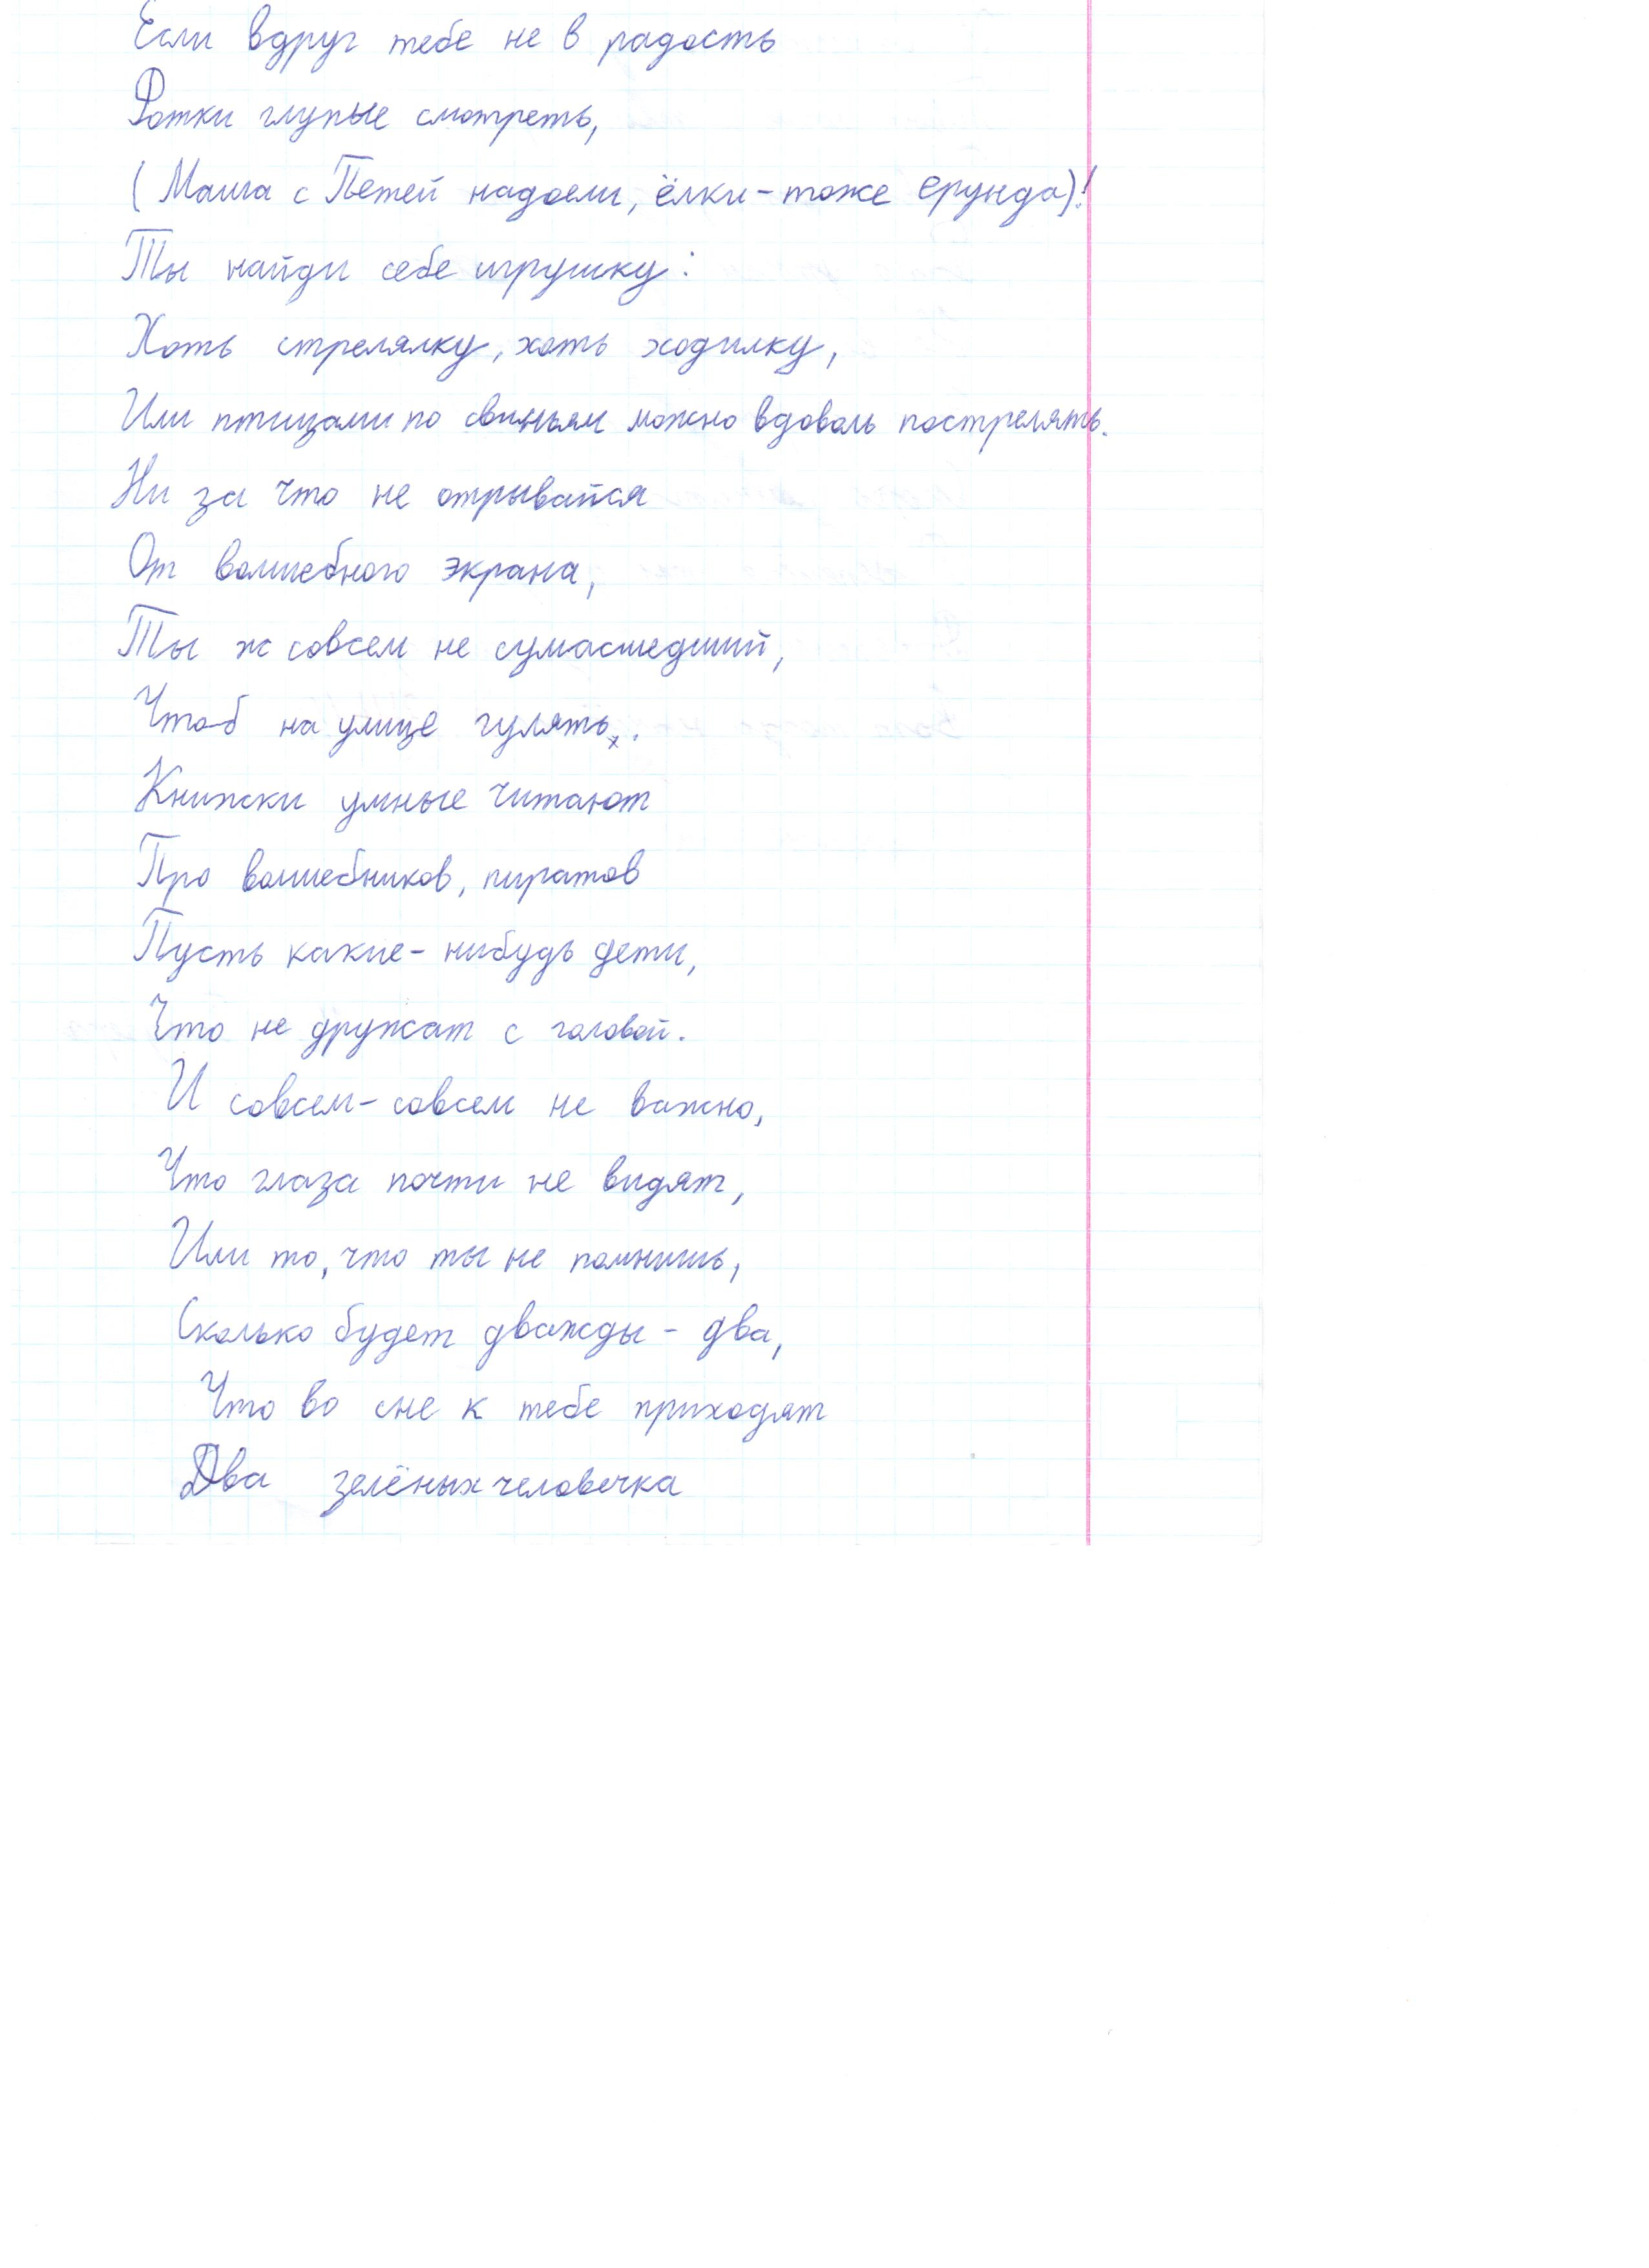 Если вдруг тебе не в радость
Фотки глупые смотреть,
(Маша с Петей надоели, ёлки-тоже ерунда)!
Ты найди себе игрушку:
Хоть стрелялку, хоть ходилку,
Или птицами по свиньям можно вдоволь пострелять.
Ни за что не отрывайся
От волшебного экрана,
Ты ж совсем не сумасшедший,
Чтоб на улице гулять.
Книжки умные читают
Про волшебников, пиратов
Пусть какие-нибудь дети,
Что не дружат с головой.
И совсем-совсем не важно,
Что глаза почти не видят,
Или то, что ты не помнишь,
Сколько будет дважды-два,
Что во сне к тебе приходят
Два зелёных человечка